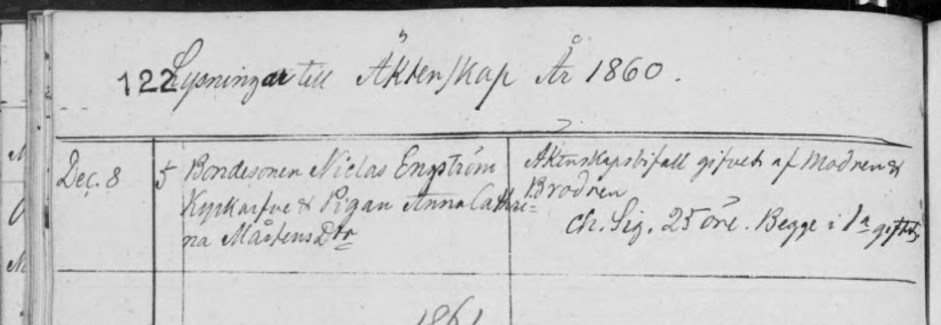 122 Lysningar till Äktenskap År 1860.
Dec. 8 5 Bondesonen Niclas Engström
Kyrkarfve & Pigan Anna Cathri=
na Mårtens Dtr
Äktenskapsbifall gifvet af Modren &
Brodren
Ch. Sig. 25 öre. Begge i 1a giftet
1861